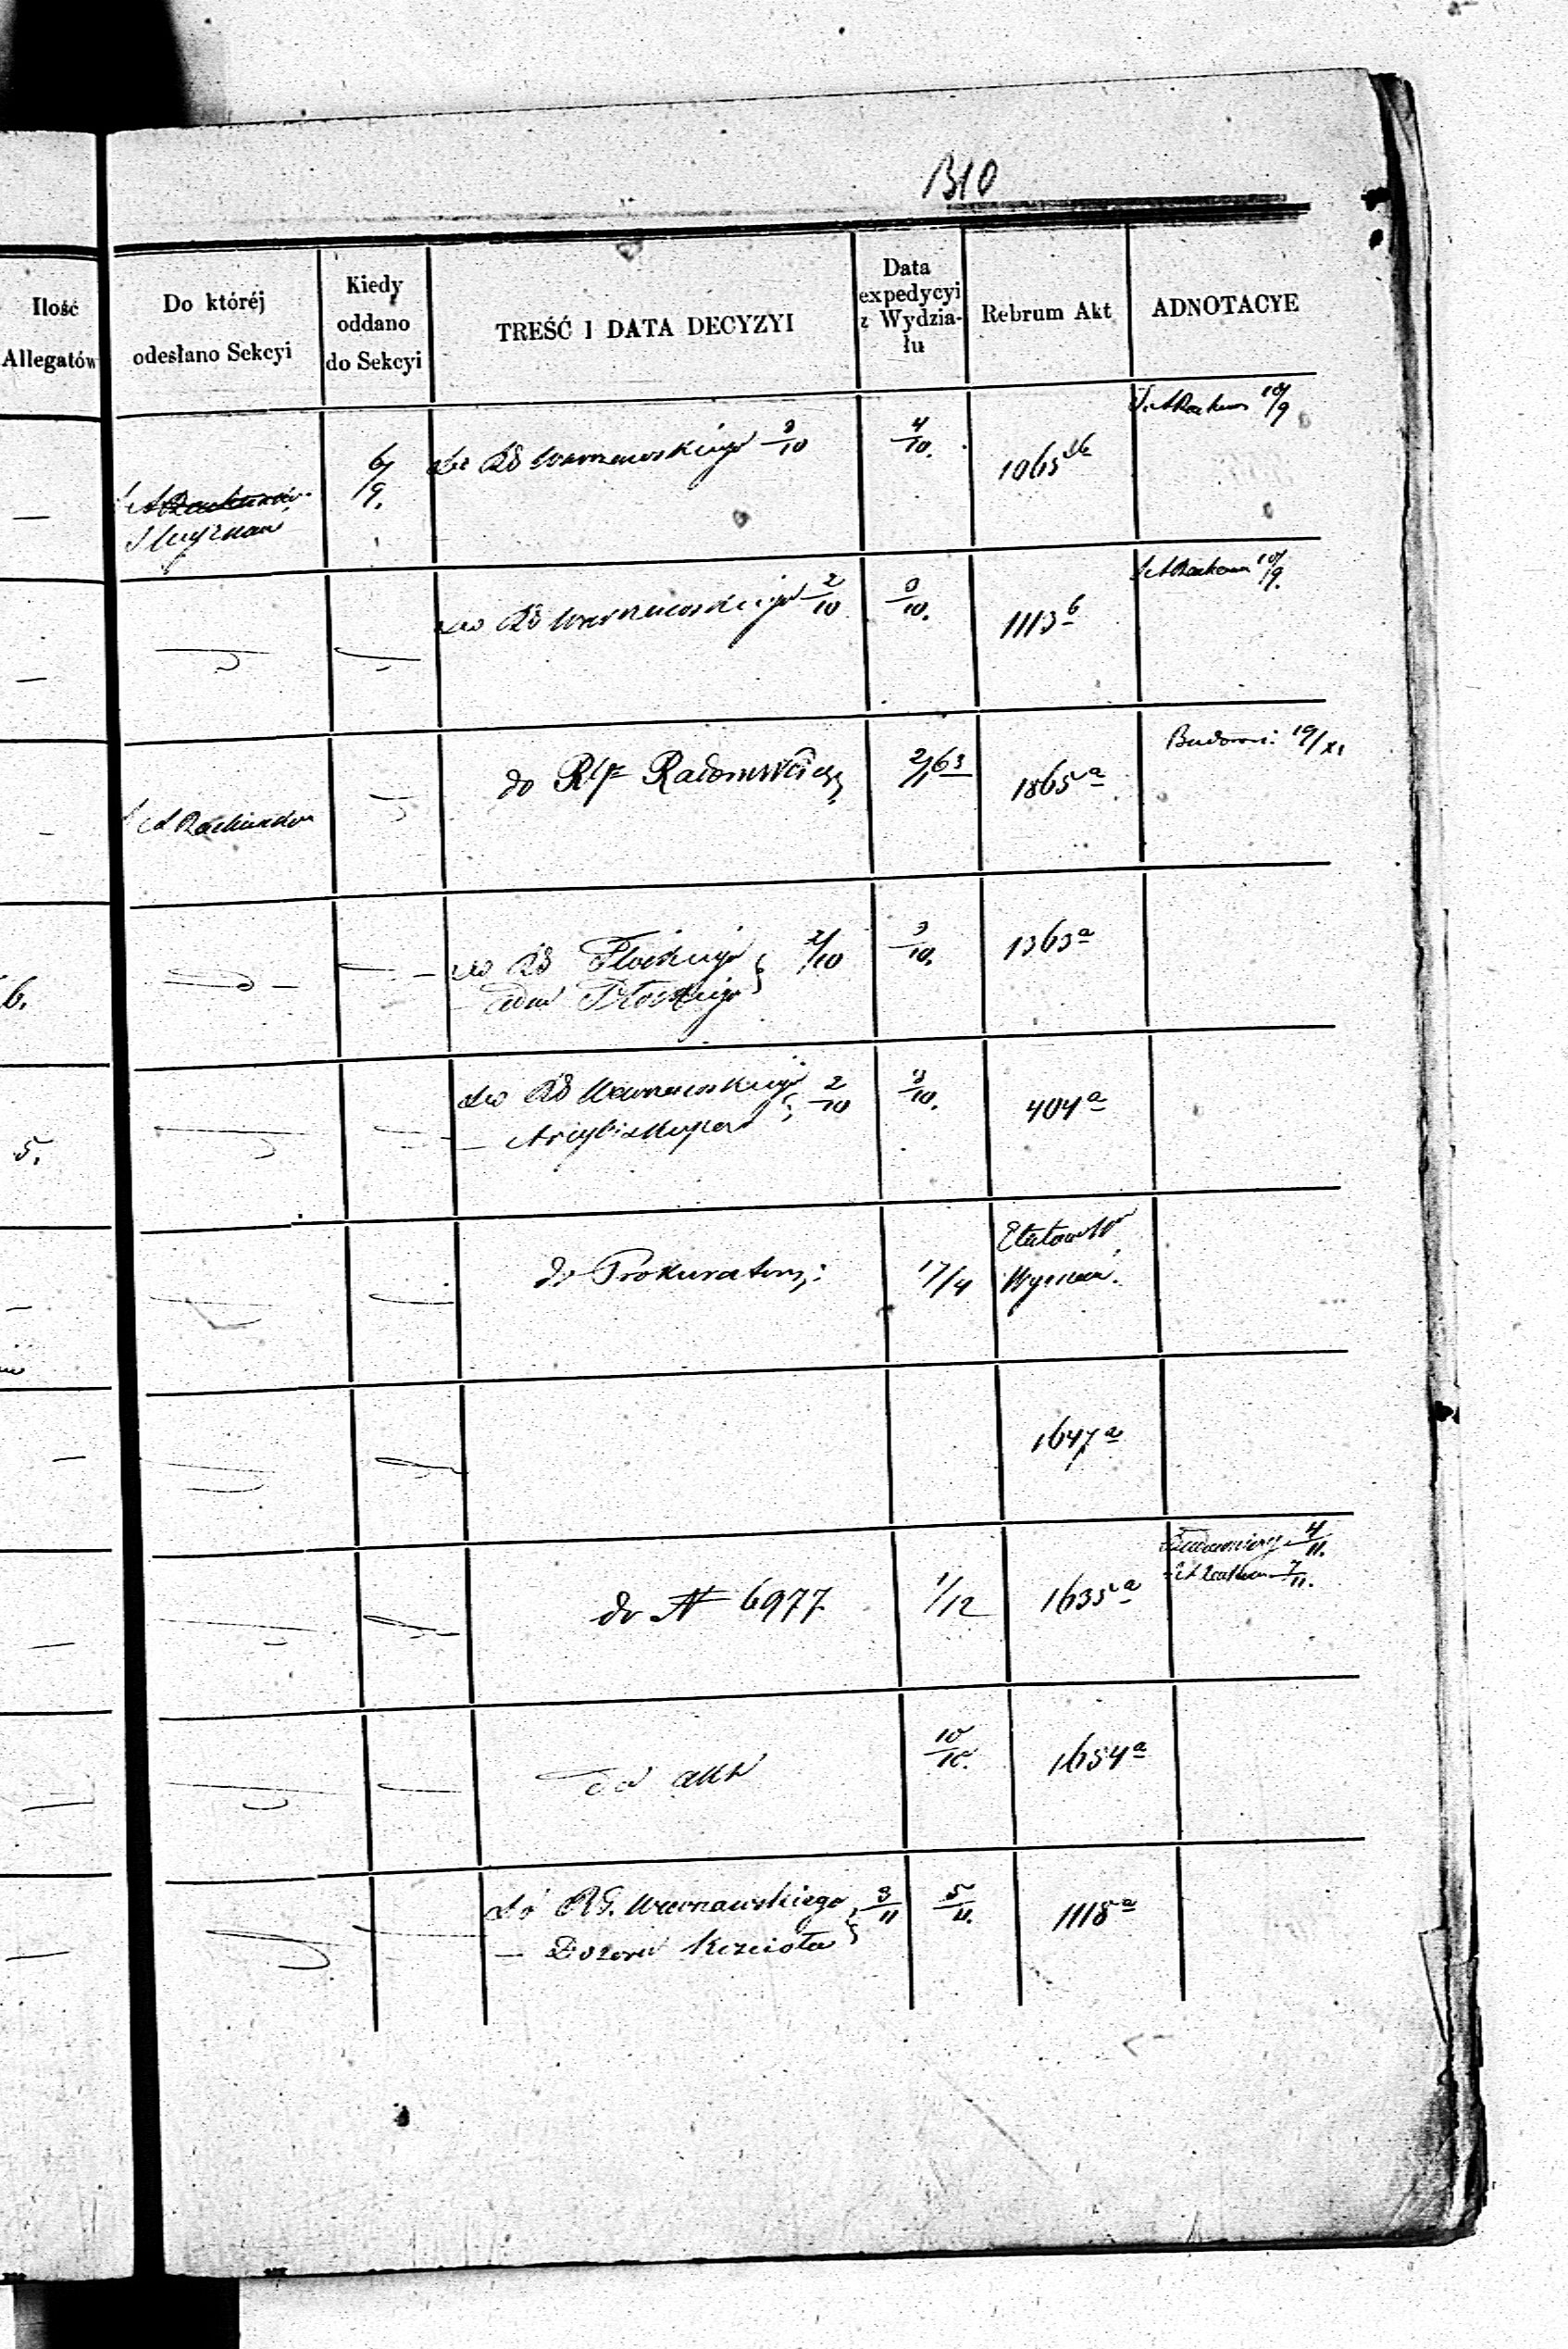 310
Ilość
Allegatów
Do któréj
odesłano Sekcyi
Kiedy
oddano
do Sekcyi
TREŚĆ I DATA DECYZYI
Data
expedycyi
z Wydzia-
łu
Rebrum Akt
ADNOTACYE
6/9.
do RG Warszawskiego 3/10
4/10.
1065
10/9
do RG Warszawskiego 2/10
3/10.
1113 b
10/9.
do Radomskiego
2/1 63
1865 a
19/XI
6.
do RG Płockiego
Płockiego
2/10
3/10.
1363 a
5.
do RG Warszawskiego
— Arcybiskupa
2/10
3/10.
404 a
do Prokuratoryi
17/4
Wyznań.
1647 a
do N 6977
1/12
1635 a
4/11.
7/11.
do akt
10/10.
1654 a
do RG. Warszawskiego
— Dozoru Kościoła
3/11
5/11.
1118 a